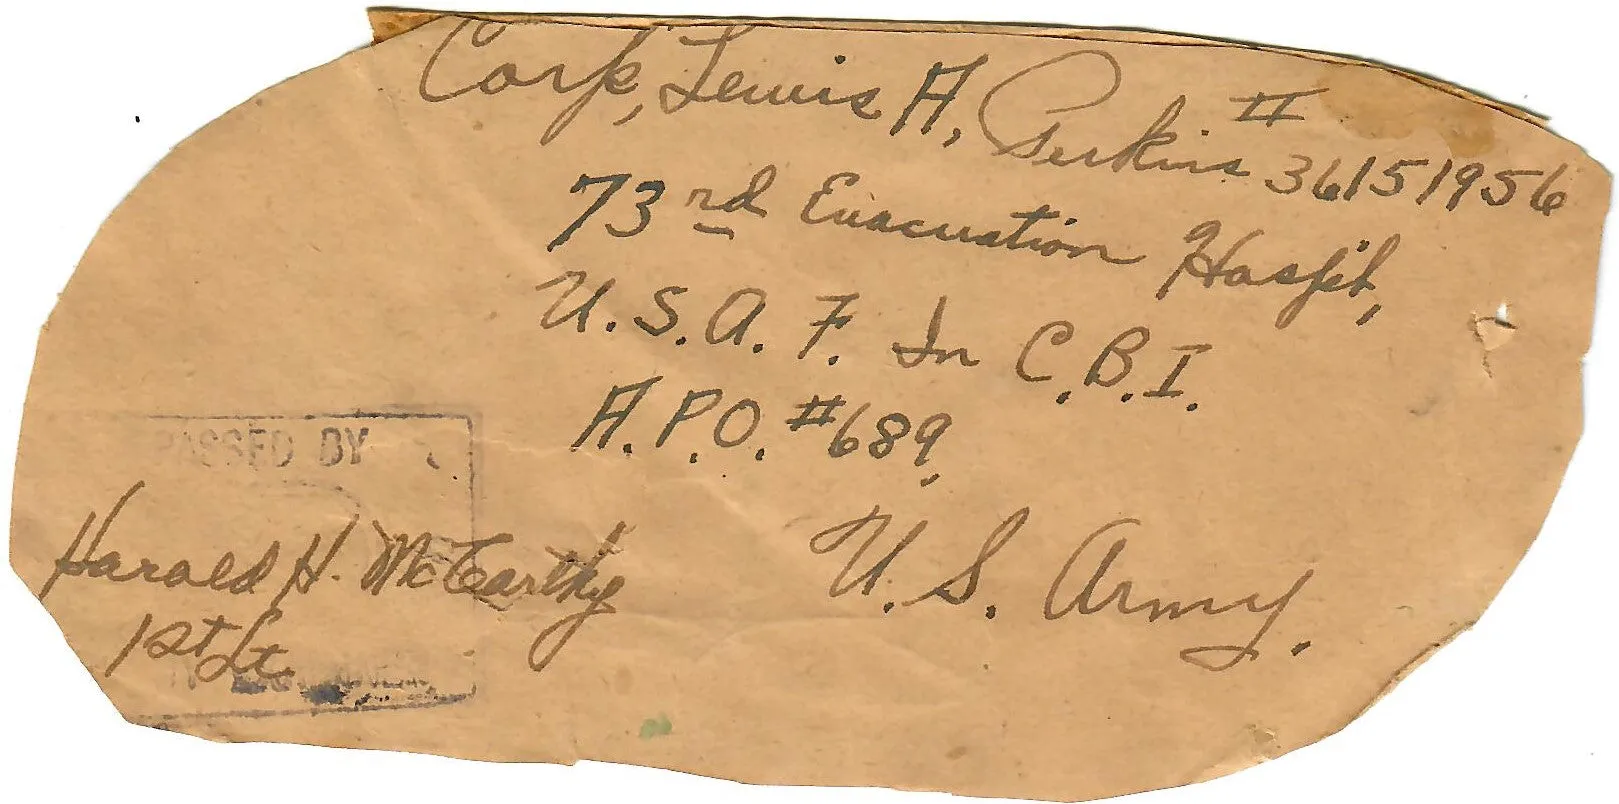 Corp, Lewis A, Perkins # 36151956
73rd Evacuation Hospit,
U.S.A.F. In C.B.I.
A.P.O. #689,
U.S. Army.
PASSED BY
Harold H. McCarthy
1st Lt.